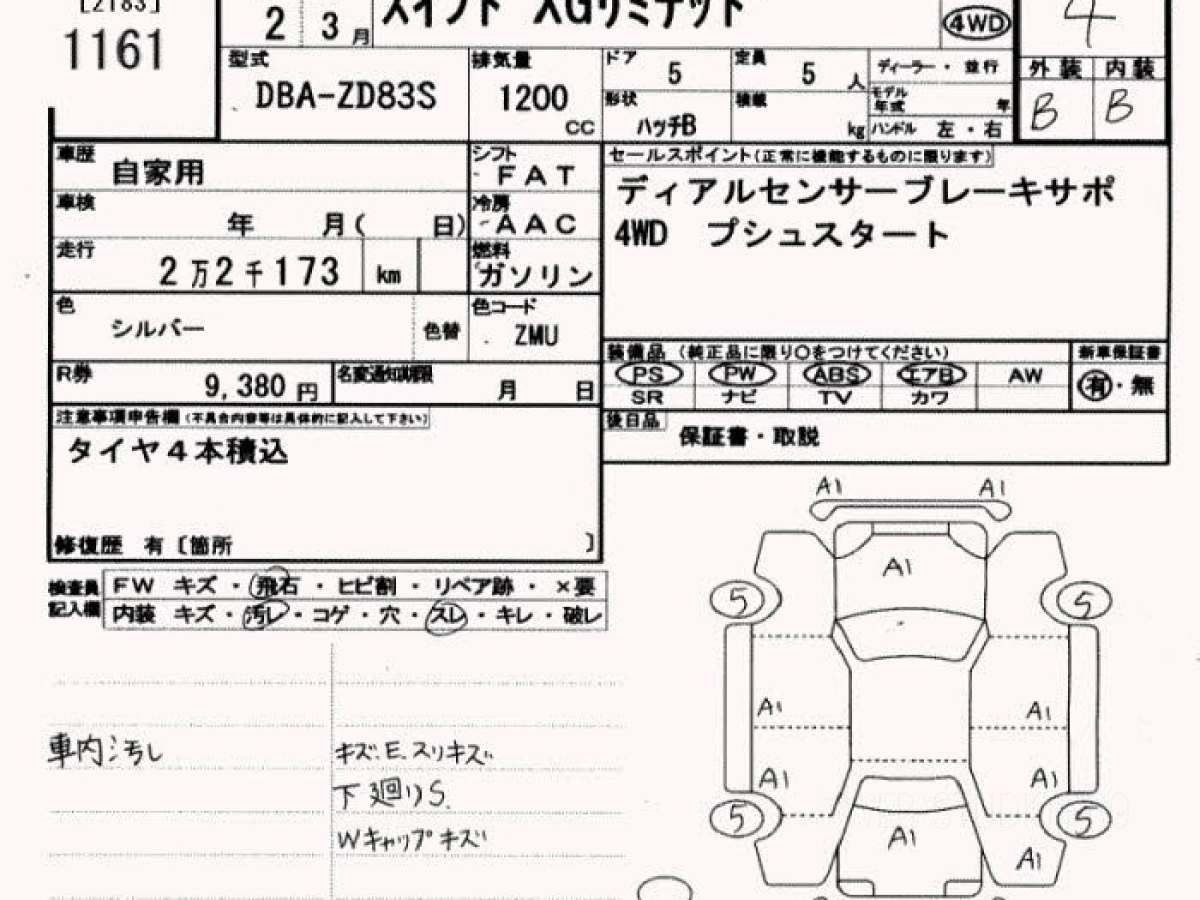 [2183]
1161
2 3 月
スイフト XGリミテッド
4WD
4
型式
DBA-ZD83S
排気量
1200
CC
ドア
5
定員
5
人
ディーラー・並行
形状
ハッチB
積載
kg
モデル年式
年
ハンドル 左・右
外装 内装
B B
車歴
自家用
シフト
FAT
セールスポイント(正常に機能するものに限ります)
ディアルセンサーブレーキサポ
4WD プシュスタート
車検
年 月( 日)
冷房
AAC
走行
2万2千173 km
燃料
ガソリン
色
シルバー
色替
色コード
ZMU
R券
9,380 円
名変通知期限
月 日
装備品 (純正品に限り○をつけてください)
新車保証書
PS PW ABS エアB AW
SR ナビ TV カワ
有・無
注意事項申告欄(不具合内容等は具体的に記入して下さい)
タイヤ4本積込
後日品
保証書・取説
修復歴 有〔箇所 〕
検査員記入欄
FW キズ・飛石・ヒビ割・リペア跡・×要
内装 キズ・汚レ・コゲ・穴・スレ・キレ・破レ
車内汚し
キズ.E.スリキズ
下廻りS.
Wキャップキズ
A1 A1
A1
5 5
A1 A1
A1 A1
5 5
A1
A1